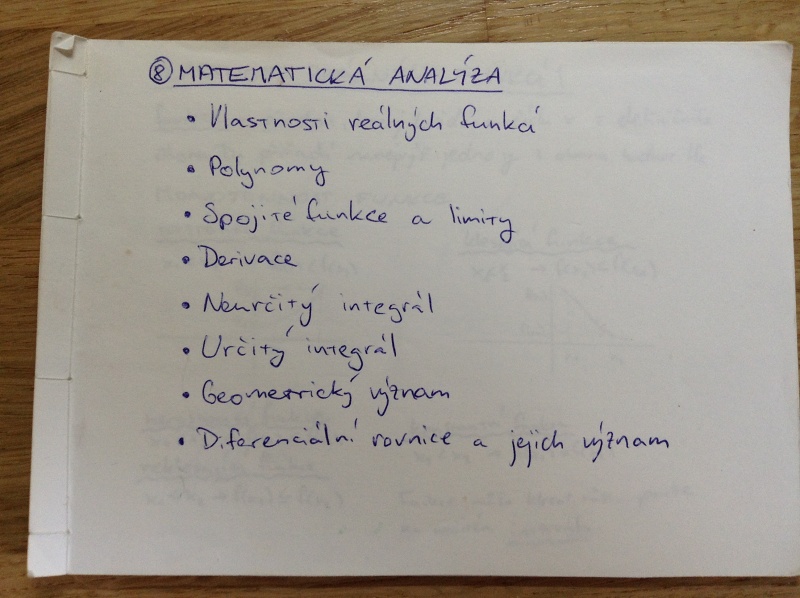 ⑧ MATEMATICKÁ ANALÝZA
• Vlastnosti reálných funkcí
• Polynomy
• Spojité funkce a limity
• Derivace
• Neurčitý integrál
• Určitý integrál
• Geometrický význam
• Diferenciální rovnice a jejich význam